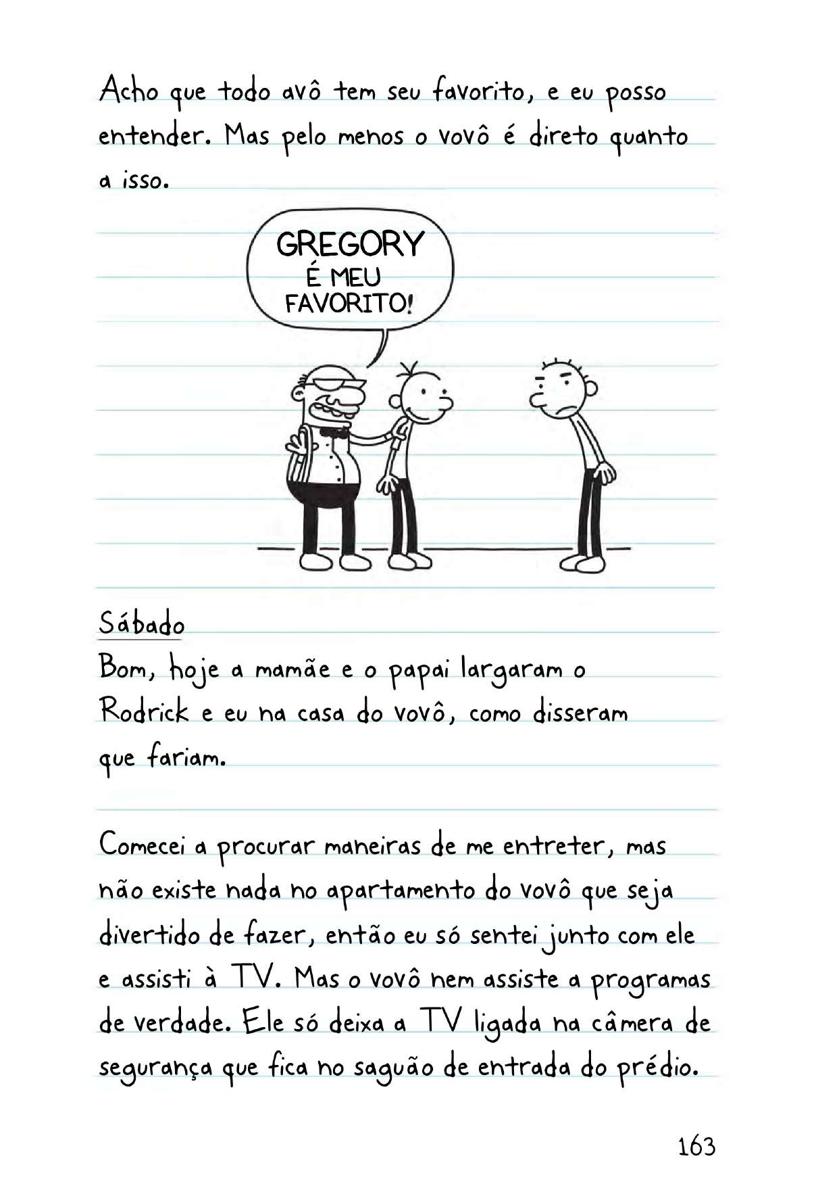 Acho que todo avô tem seu favorito, e eu posso
entender. Mas pelo menos o vovô é direto quanto
a isso.
GREGORY
É MEU
FAVORITO!
Sábado
Bom, hoje a mamãe e o papai largaram o
Rodrick e eu na casa do vovô, como disseram
que fariam.
Comecei a procurar maneiras de me entreter, mas
não existe nada no apartamento do vovô que seja
divertido de fazer, então eu só sentei junto com ele
e assisti à TV. Mas o vovô nem assiste a programas
de verdade. Ele só deixa a TV ligada na câmera de
segurança que fica no saguão de entrada do prédio.
163